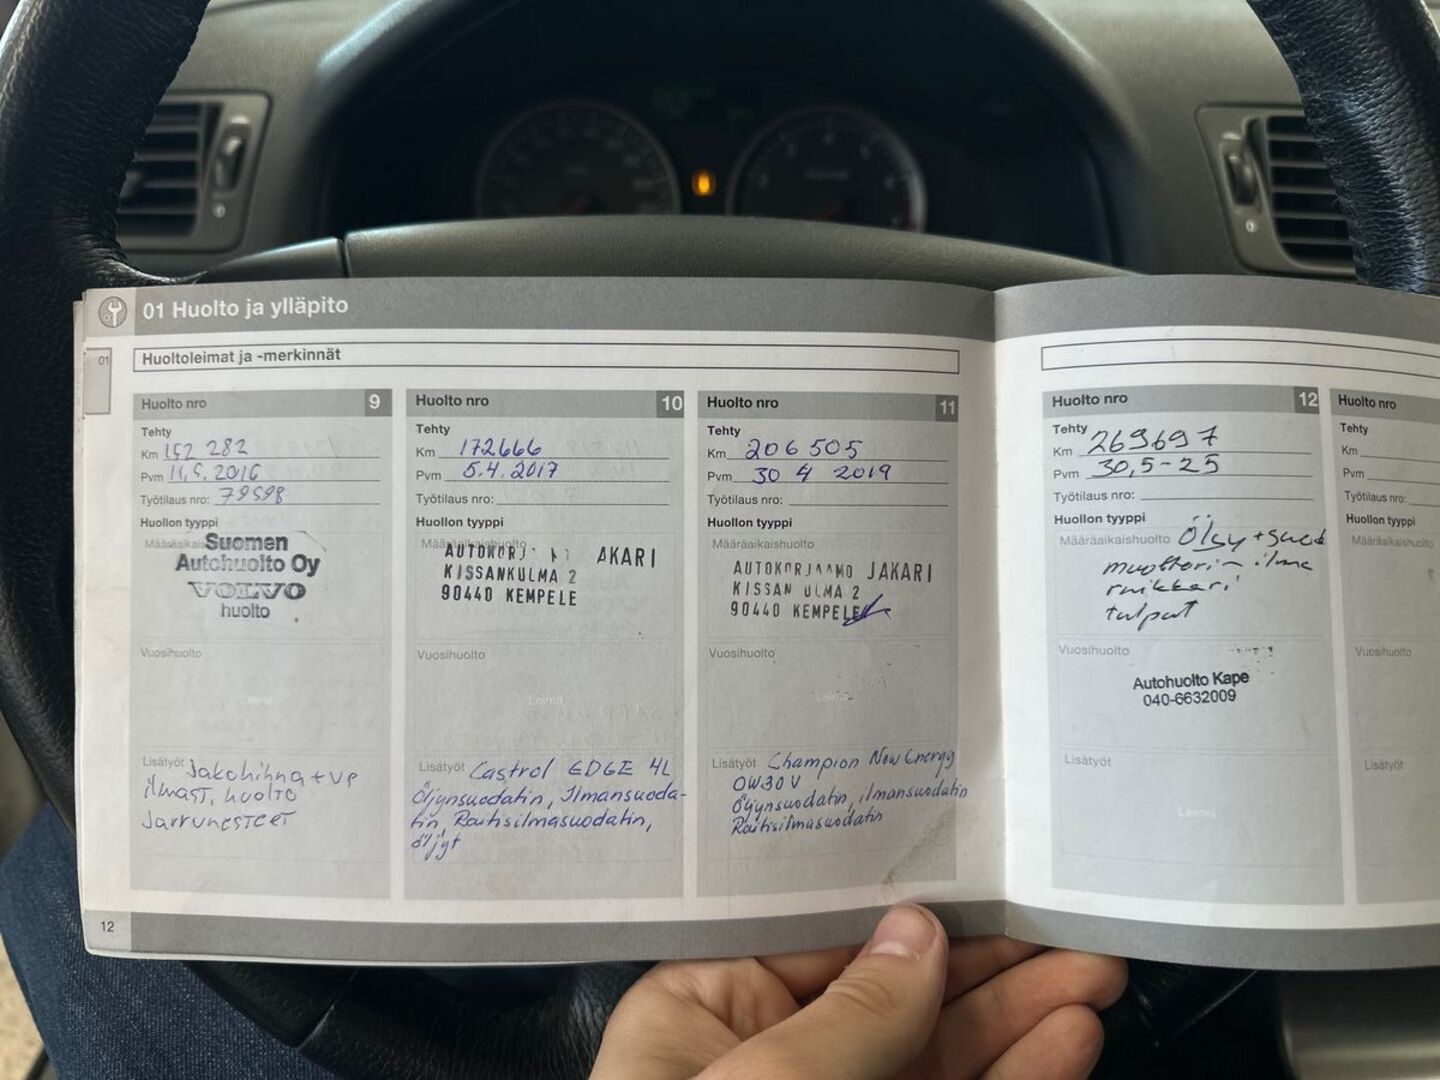 01 Huolto ja ylläpito
01
Huoltoleimat ja -merkinnät
Huolto nro 9
Tehty
Km 152 282
Pvm 11.5.2016
Työtilaus nro: 79598
Huollon tyyppi
Määräaikais
Suomen
Autohuolto Oy
VOLVO
huolto
Vuosihuolto
Leima
Lisätyöt Jakohihna + vp
ilmast. huolto
Jarrunesteet
12
Huolto nro 10
Tehty
Km 172666
Pvm 5.4.2017
Työtilaus nro:
Huollon tyyppi
Määräaikaishuolto
AKARI
KISSANKULMA 2
90440 KEMPELE
Vuosihuolto
Leima
Lisätyöt Castrol EDGE 4L
Öljynsuodatin, Ilmansuoda-
tin, Raitisilmasuodatin,
öljyt
Huolto nro 11
Tehty
Km 206 505
Pvm 30 4 2019
Työtilaus nro:
Huollon tyyppi
Määräaikaishuolto
AUTOKORJAAMO JAKARI
KISSAN ULMA 2
90440 KEMPELE
Vuosihuolto
Leima
Lisätyöt Champion New Energy
0W30 V
Öljynsuodatin, ilmansuodatin
Raitisilmasuodatin
Huolto nro 12
Tehty
Km 269697
Pvm 30,5-25
Työtilaus nro:
Huollon tyyppi
Määräaikaishuolto Öljy + suod
moottorin ilma
raikkari
tulpat
Vuosihuolto
Autohuolto Kape
040-6632009
Lisätyöt
Leima
Huolto nro
Tehty
Km
Pvm
Työtilaus nro:
Huollon tyyppi
Määräaikaishuolto
Vuosihuolto
Lisätyöt